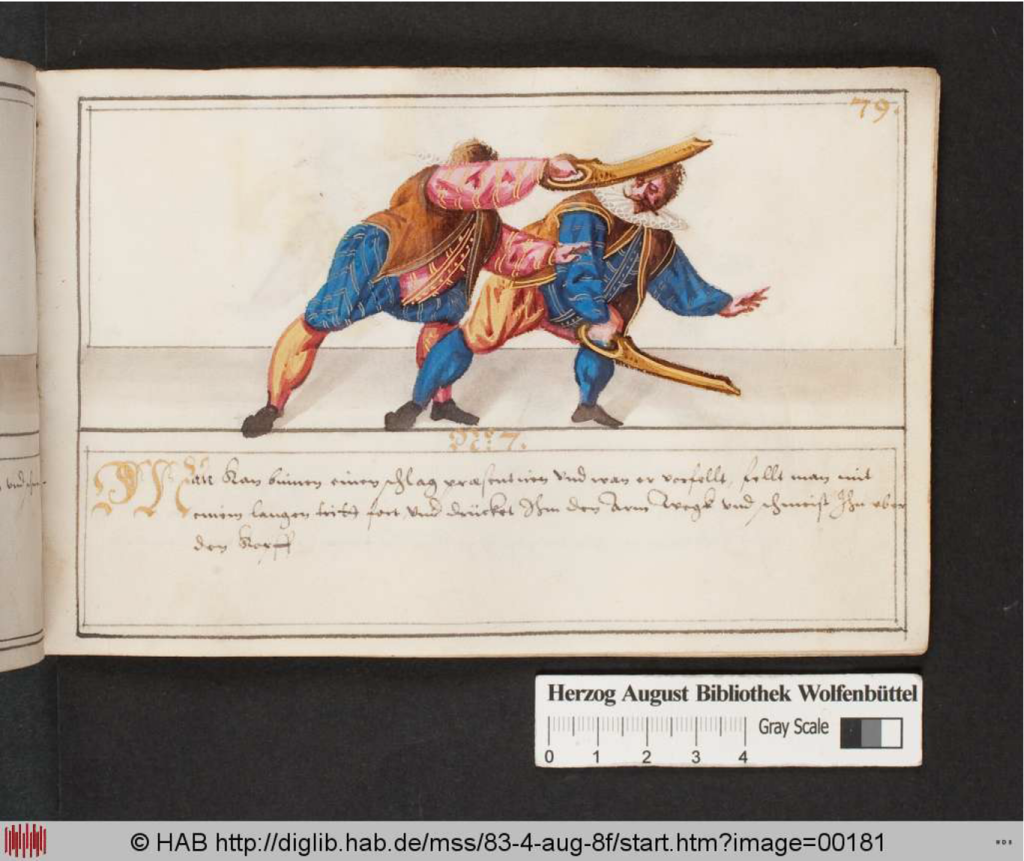 79.
No: 7.
Man Kan binnen einen schlag præsentiren Vnd wan er verfellt, fellt man mit
einem langen tritt fort Vnd drücket Ihm den Arm Wegk vnd schmeist Ihn vber
den Kopff
Herzog August Bibliothek Wolfenbüttel
Gray Scale
0 1 2 3 4
© HAB http://diglib.hab.de/mss/83-4-aug-8f/start.htm?image=00181